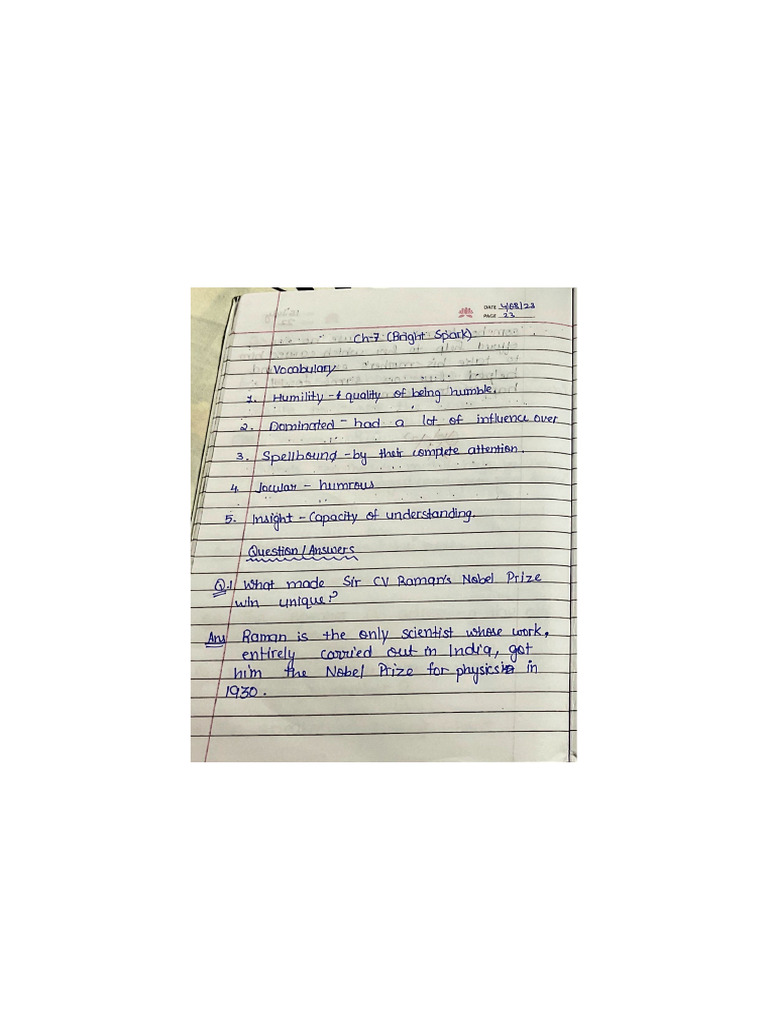 DATE 4/08/23
PAGE 23
Ch-7 (Bright Spark)
Vocabulary
1. Humility - quality of being humble.
2. Dominated - had a lot of influence over
3. Spellbound - by their complete attention.
4. Jocular - humrous
5. Insight - Capacity of understanding.
Question/Answers
Q.1 What made Sir CV Raman's Nobel Prize
win unique?
Ans Raman is the only scientist whose work,
entirely carried out in India, got
him the Nobel Prize for physics in
1930.